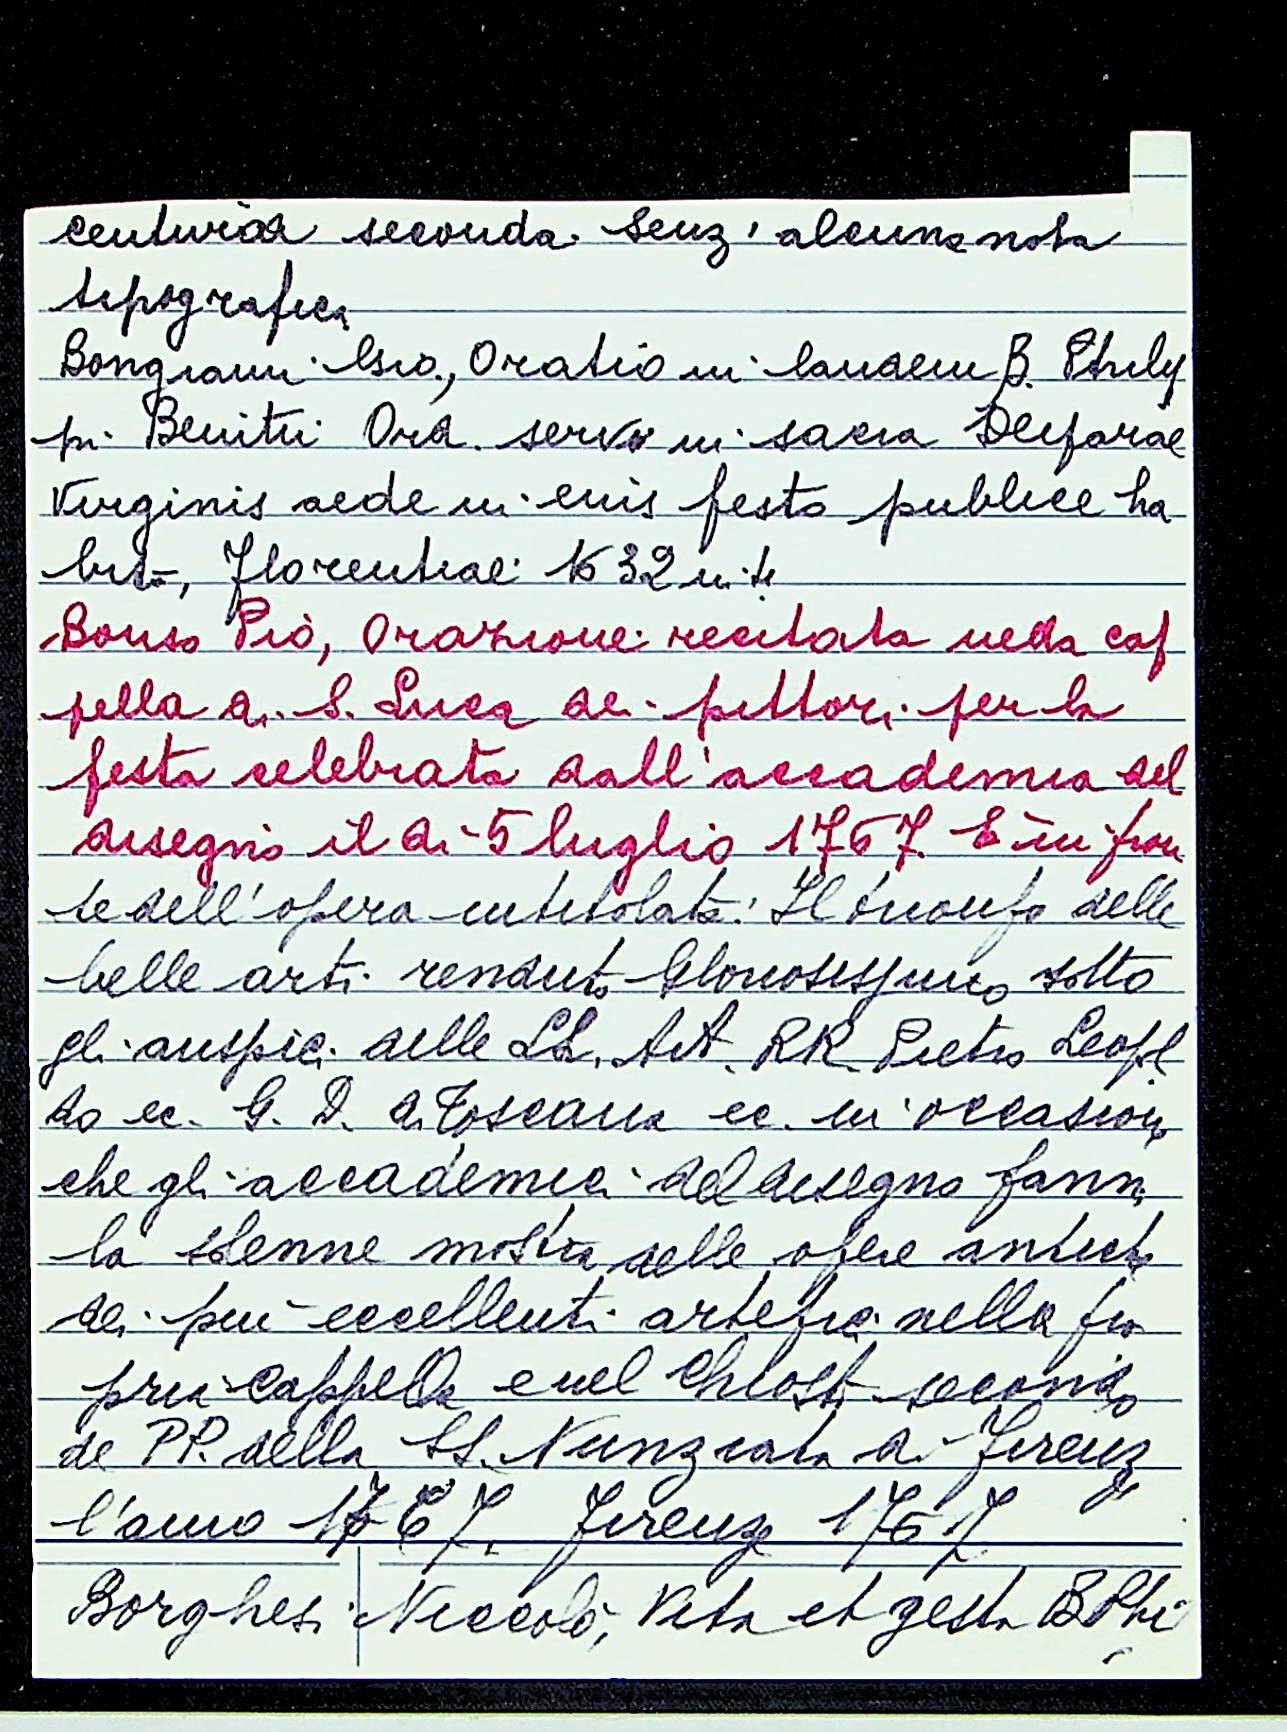 centuria seconda. Senz'alcuna nota
tipografica
Bongianni Isio., Oratio in laudem B. Phily
pi Benitii Ord. serv. in sacra Deiparae
Virginis aede in eius festo publice ha
bita, Florentiae 1632 in 4.
Bonso Pio, Orazione recitata nella cap
pella di S. Luca dei pittori per la
festa celebrata dall'accademia del
disegno il dì 5 luglio 1767. È in fron
te dell'opera intitolata: Il trionfo delle
belle arti renduto Gloriosissimo sotto
gli auspici delle LL. AA. RR. Pietro Leopl
do ec. G. D. di Toscana ec. in occasion
che gli accademici del disegno fanno
la solenne mostra delle opere antiche
dei più eccellenti artefici nella pro
pria cappella e nel Chiostro secondo
de PP. della SS. Nunziata di Firenze
l'anno 1767. Firenze 1767
Borghesi Niccolò, Vita et gesta B. Phi